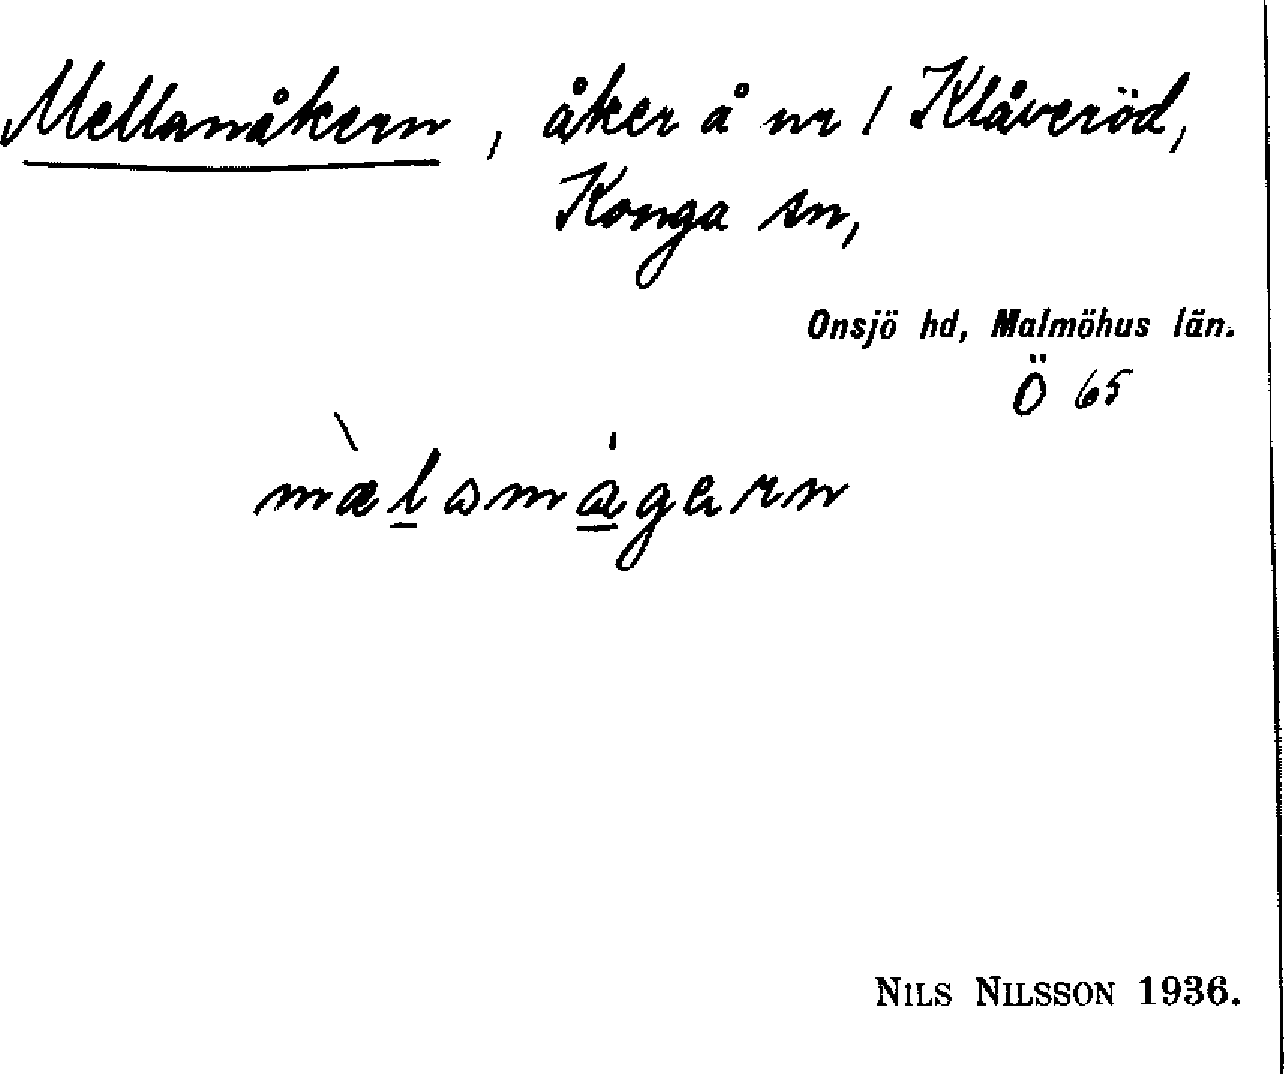 Mellanåkern, åker å nr 1 Klåveröd,
Konga sn,
Onsjö hd, Malmöhus län.
Ö 65
NILS NILSSON 1936.